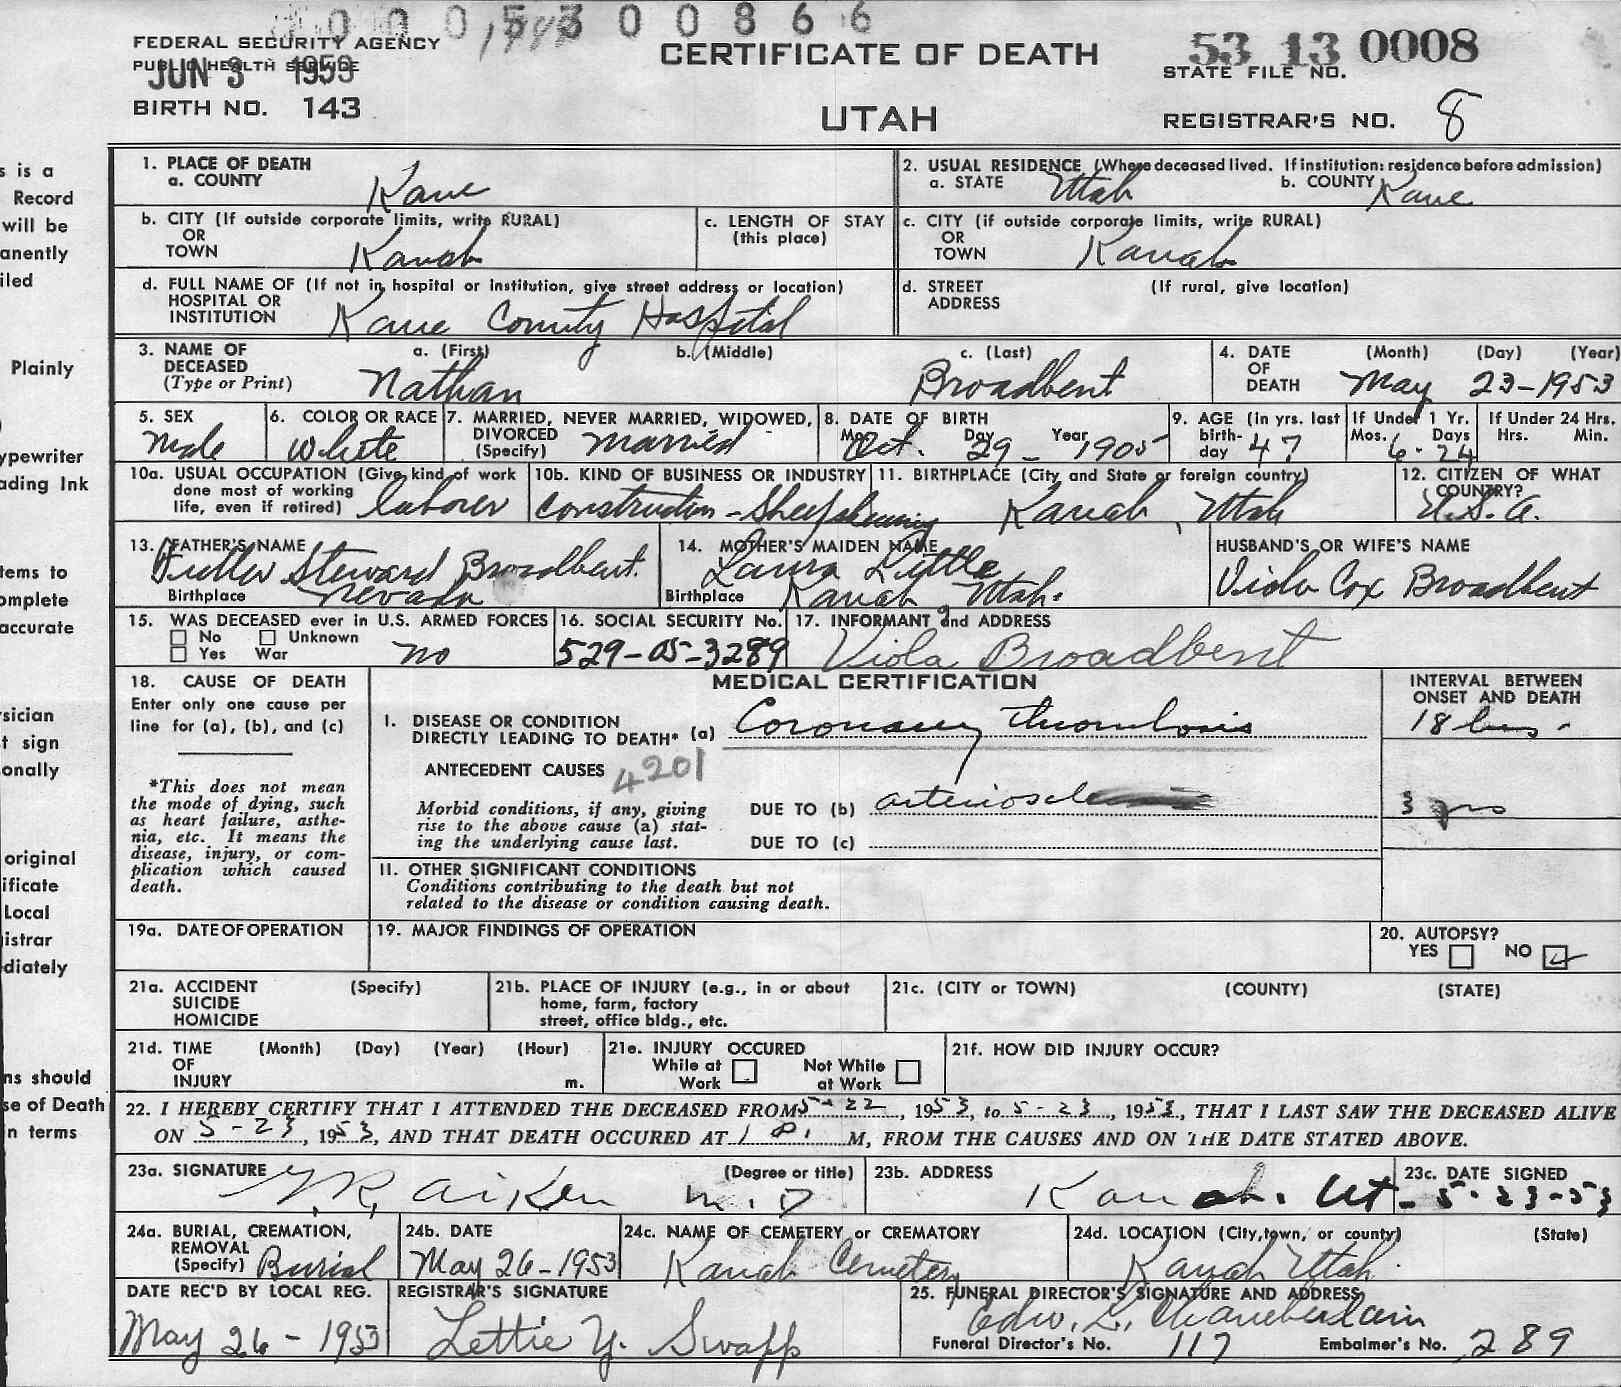 0 0 0 5 3 0 0 8 6 6
FEDERAL SECURITY AGENCY
PUBLIC HEALTH SERVICE
JUN 3 1953
BIRTH NO. 143
CERTIFICATE OF DEATH
UTAH
53 13 0008
STATE FILE NO.
REGISTRAR'S NO. 8
s is a
Record
will be
anently
iled
Plainly
ypewriter
ading Ink
tems to
omplete
accurate
sician
t sign
onally
original
ificate
Local
istrar
diately
ns should
se of Death
n terms
1. PLACE OF DEATH
a. COUNTY Kane
2. USUAL RESIDENCE (Where deceased lived. If institution: residence before admission)
a. STATE Utah b. COUNTY Kane
b. CITY (If outside corporate limits, write RURAL)
OR
TOWN Kanab
c. LENGTH OF STAY
(this place)
c. CITY (if outside corporate limits, write RURAL)
OR
TOWN Kanab
d. FULL NAME OF (If not in hospital or institution, give street address or location)
HOSPITAL OR
INSTITUTION Kane County Hospital
d. STREET (If rural, give location)
ADDRESS
3. NAME OF DECEASED
(Type or Print)
a. (First) Nathan
b. (Middle)
c. (Last) Broadbent
4. DATE OF DEATH (Month) (Day) (Year)
May 23-1953
5. SEX
male
6. COLOR OR RACE
White
7. MARRIED, NEVER MARRIED, WIDOWED,
DIVORCED
(Specify) married
8. DATE OF BIRTH
Mo. Day Year
Oct. 29- 1905
9. AGE (in yrs. last
birthday 47
If Under 1 Yr.
Mos. Days
6-24
If Under 24 Hrs.
Hrs. Min.
10a. USUAL OCCUPATION (Give kind of work
done most of working
life, even if retired) laborer
10b. KIND OF BUSINESS OR INDUSTRY
Construction - Sheepshearing
11. BIRTHPLACE (City and State or foreign country)
Kanab, Utah
12. CITIZEN OF WHAT
COUNTRY?
U.S.A.
13. FATHER'S NAME
Steward Broadbent.
Birthplace Nevada
14. MOTHER'S MAIDEN NAME
Laura Little
Birthplace Kanab Utah.
HUSBAND'S OR WIFE'S NAME
Viola Cox Broadbent
15. WAS DECEASED ever in U.S. ARMED FORCES
No Unknown
Yes War no
16. SOCIAL SECURITY No.
529-05-3289
17. INFORMANT and ADDRESS
Viola Broadbent
18. CAUSE OF DEATH
Enter only one cause per
line for (a), (b), and (c)
*This does not mean
the mode of dying, such
as heart failure, asthe-
nia, etc. It means the
disease, injury, or com-
plication which caused
death.
MEDICAL CERTIFICATION
INTERVAL BETWEEN
ONSET AND DEATH
I. DISEASE OR CONDITION
DIRECTLY LEADING TO DEATH* (a) Coronary thrombosis
18 hrs -
ANTECEDENT CAUSES
4201
Morbid conditions, if any, giving
rise to the above cause (a) stat-
ing the underlying cause last.
DUE TO (b)
3 yrs
DUE TO (c)
II. OTHER SIGNIFICANT CONDITIONS
Conditions contributing to the death but not
related to the disease or condition causing death.
19a. DATE OF OPERATION
19. MAJOR FINDINGS OF OPERATION
20. AUTOPSY?
YES NO
21a. ACCIDENT (Specify)
SUICIDE
HOMICIDE
21b. PLACE OF INJURY (e.g., in or about
home, farm, factory
street, office bldg., etc.
21c. (CITY or TOWN) (COUNTY) (STATE)
21d. TIME (Month) (Day) (Year) (Hour)
OF
INJURY m.
21e. INJURY OCCURED
While at Work
Not While at Work
21f. HOW DID INJURY OCCUR?
22. I HEREBY CERTIFY THAT I ATTENDED THE DECEASED FROM 5-22, 1953, to 5-23, 1953, THAT I LAST SAW THE DECEASED ALIVE
ON 5-23, 1953, AND THAT DEATH OCCURED AT 1 P. M, FROM THE CAUSES AND ON THE DATE STATED ABOVE.
23a. SIGNATURE (Degree or title)
Aiken M.D
23b. ADDRESS
Kanab. Ut-
23c. DATE SIGNED
5-23-53
24a. BURIAL, CREMATION,
REMOVAL
(Specify) Burial
24b. DATE
May 26-1953
24c. NAME OF CEMETERY or CREMATORY
Kanab Cemetery
24d. LOCATION (City, town, or county) (State)
Kanab Utah
DATE REC'D BY LOCAL REG.
May 26-1953
REGISTRAR'S SIGNATURE
Lettie Y. Swapp
25. FUNERAL DIRECTOR'S SIGNATURE AND ADDRESS
Edw. L. Chamberlain
Funeral Director's No. 117
Embalmer's No. 289